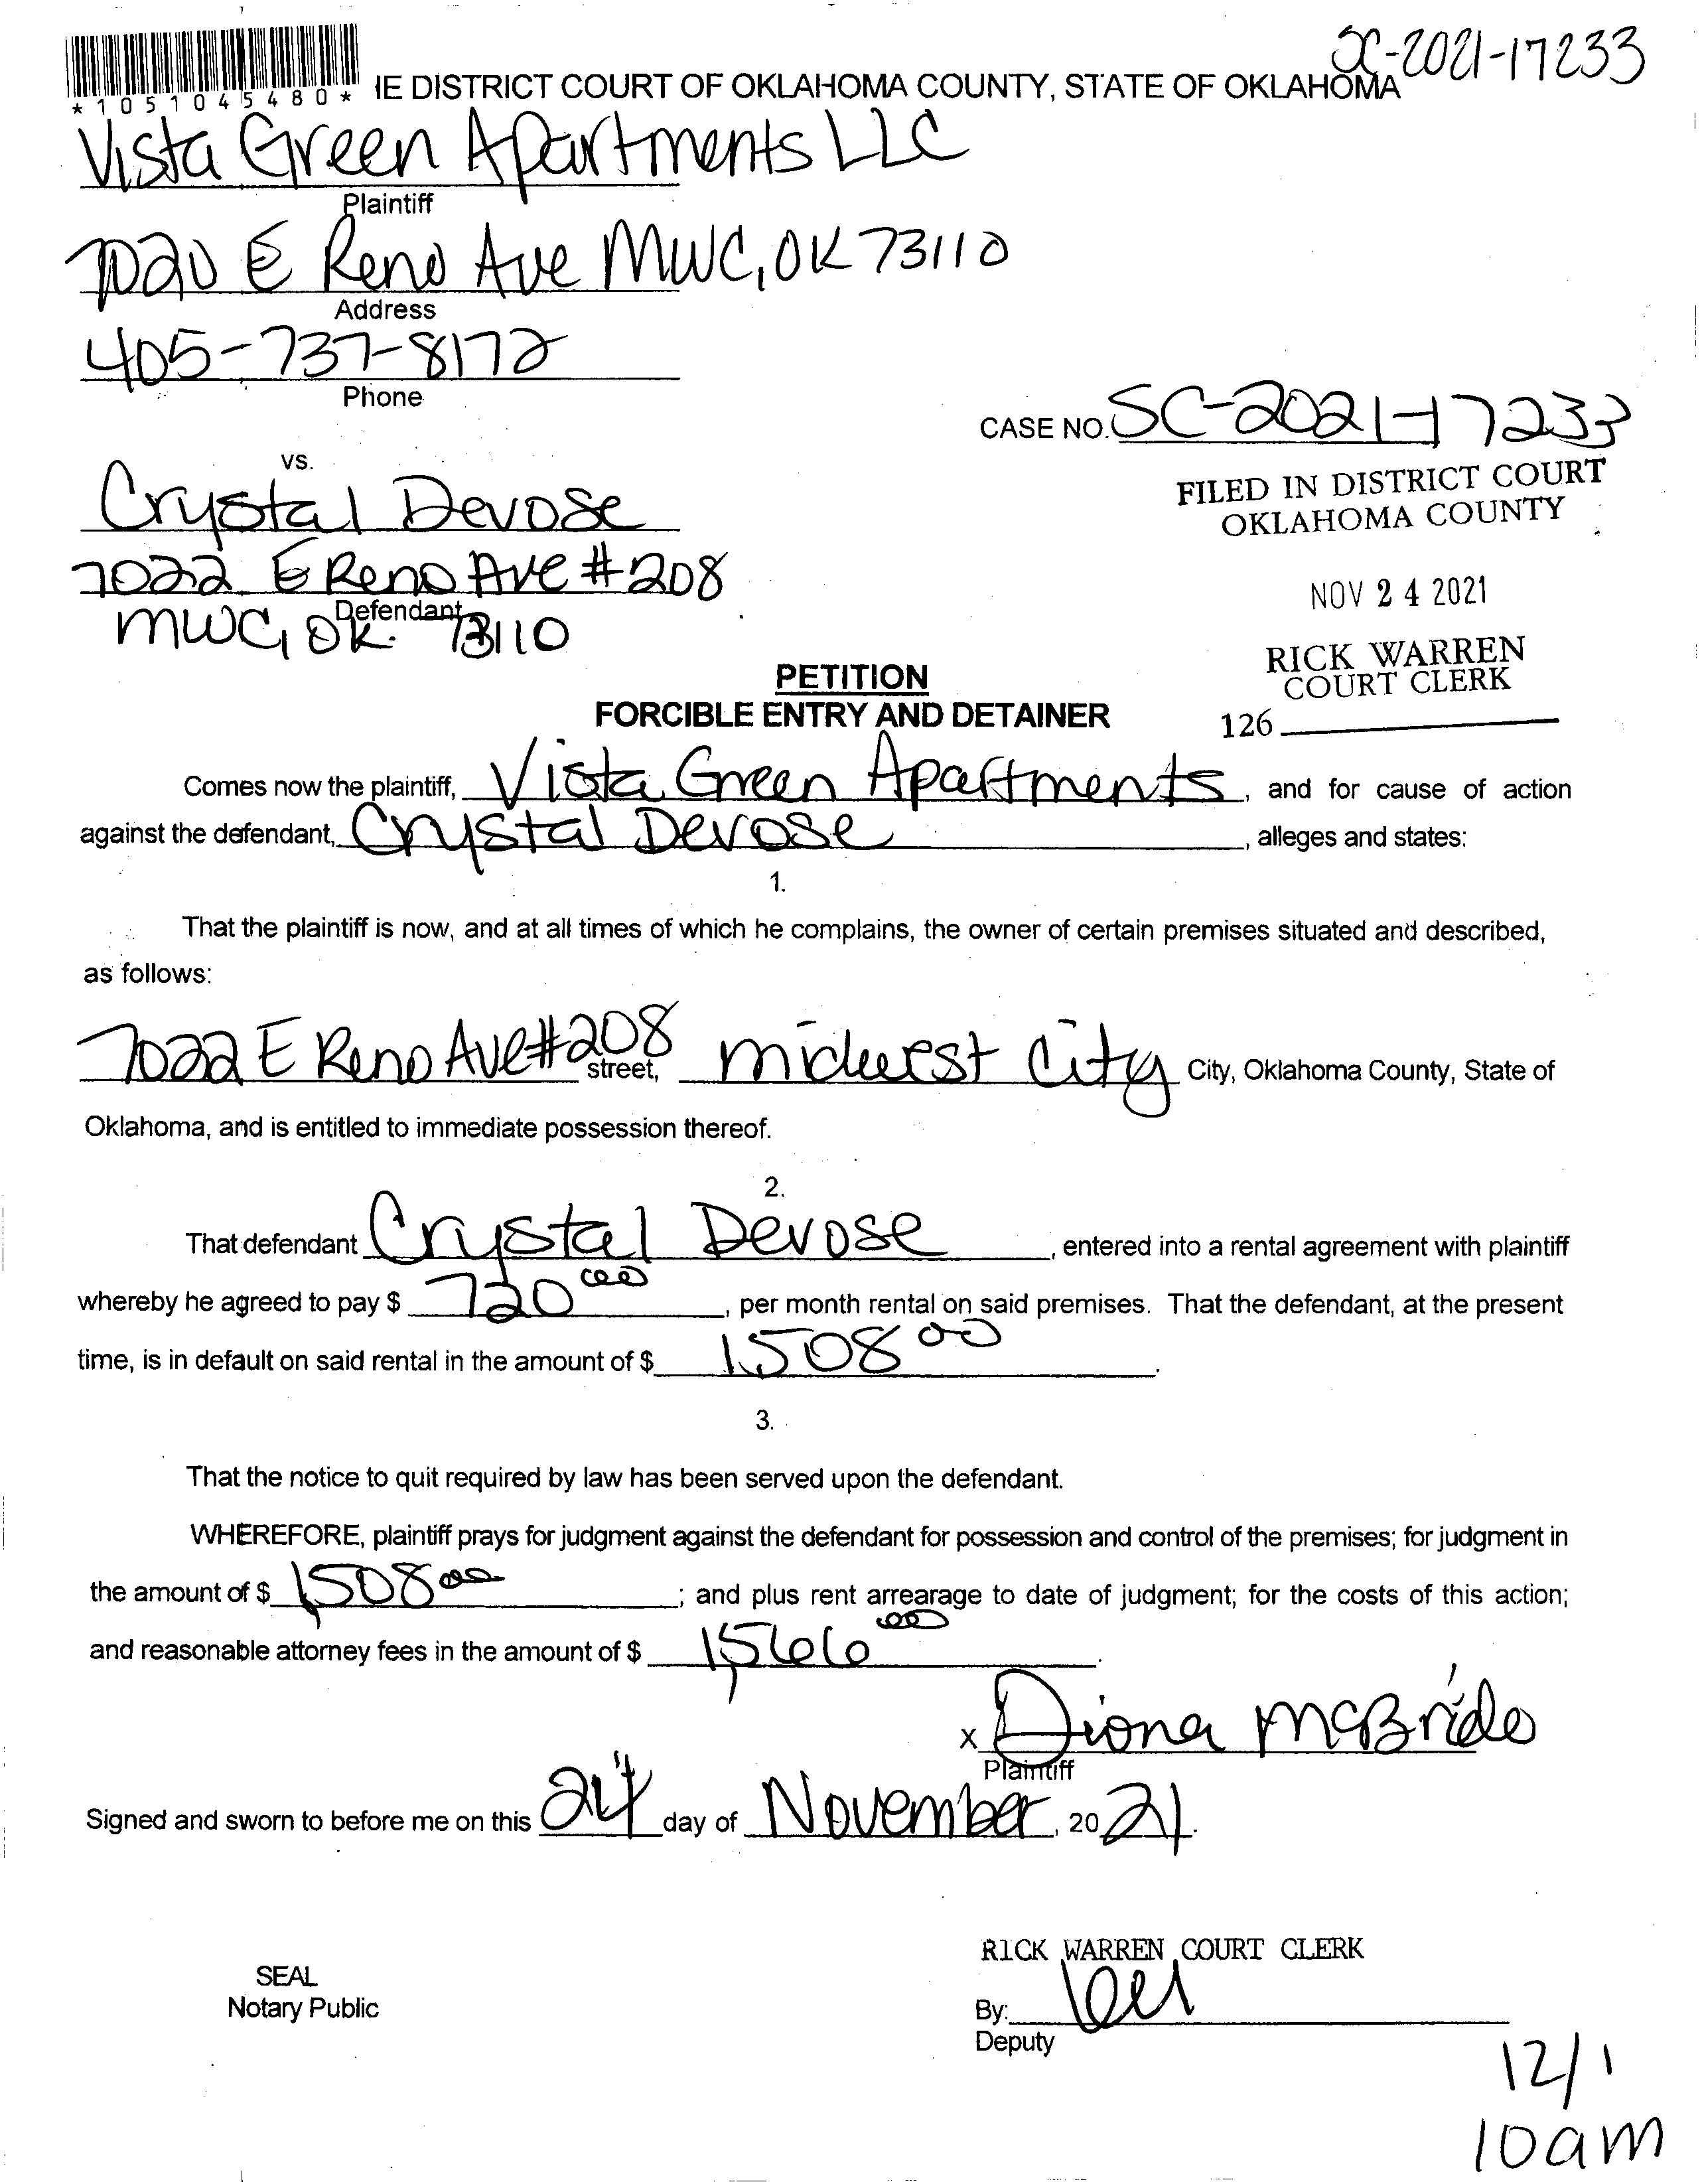 SC-2021-17233
*1051045480* IE DISTRICT COURT OF OKLAHOMA COUNTY, STATE OF OKLAHOMA
Vista Green Apartments LLC
Plaintiff
7020 E Reno Ave MWC, OK 73110
Address
405-737-8172
Phone
CASE NO. SC-2021-17233
vs.
FILED IN DISTRICT COURT
OKLAHOMA COUNTY
Crystal Devose
7022 E Reno Ave #208
Defendant
MWC, OK. 73110
NOV 24 2021
RICK WARREN
COURT CLERK
126
PETITION
FORCIBLE ENTRY AND DETAINER
Comes now the plaintiff, Vista Green Apartments, and for cause of action
against the defendant, Crystal Devose, alleges and states:
1.
That the plaintiff is now, and at all times of which he complains, the owner of certain premises situated and described,
as follows:
7022 E Reno Ave #208 street, Midwest City City, Oklahoma County, State of
Oklahoma, and is entitled to immediate possession thereof.
2.
That defendant Crystal Devose, entered into a rental agreement with plaintiff
whereby he agreed to pay $ 720 00, per month rental on said premises. That the defendant, at the present
time, is in default on said rental in the amount of $ 1508 00.
3.
That the notice to quit required by law has been served upon the defendant.
WHEREFORE, plaintiff prays for judgment against the defendant for possession and control of the premises; for judgment in
the amount of $ 1,508 00; and plus rent arrearage to date of judgment; for the costs of this action;
and reasonable attorney fees in the amount of $ 1,566 00.
x Diona McBride
Plaintiff
Signed and sworn to before me on this 24 day of November, 20 21.
RICK WARREN COURT CLERK
SEAL
Notary Public
By:
Deputy
12/1
10am